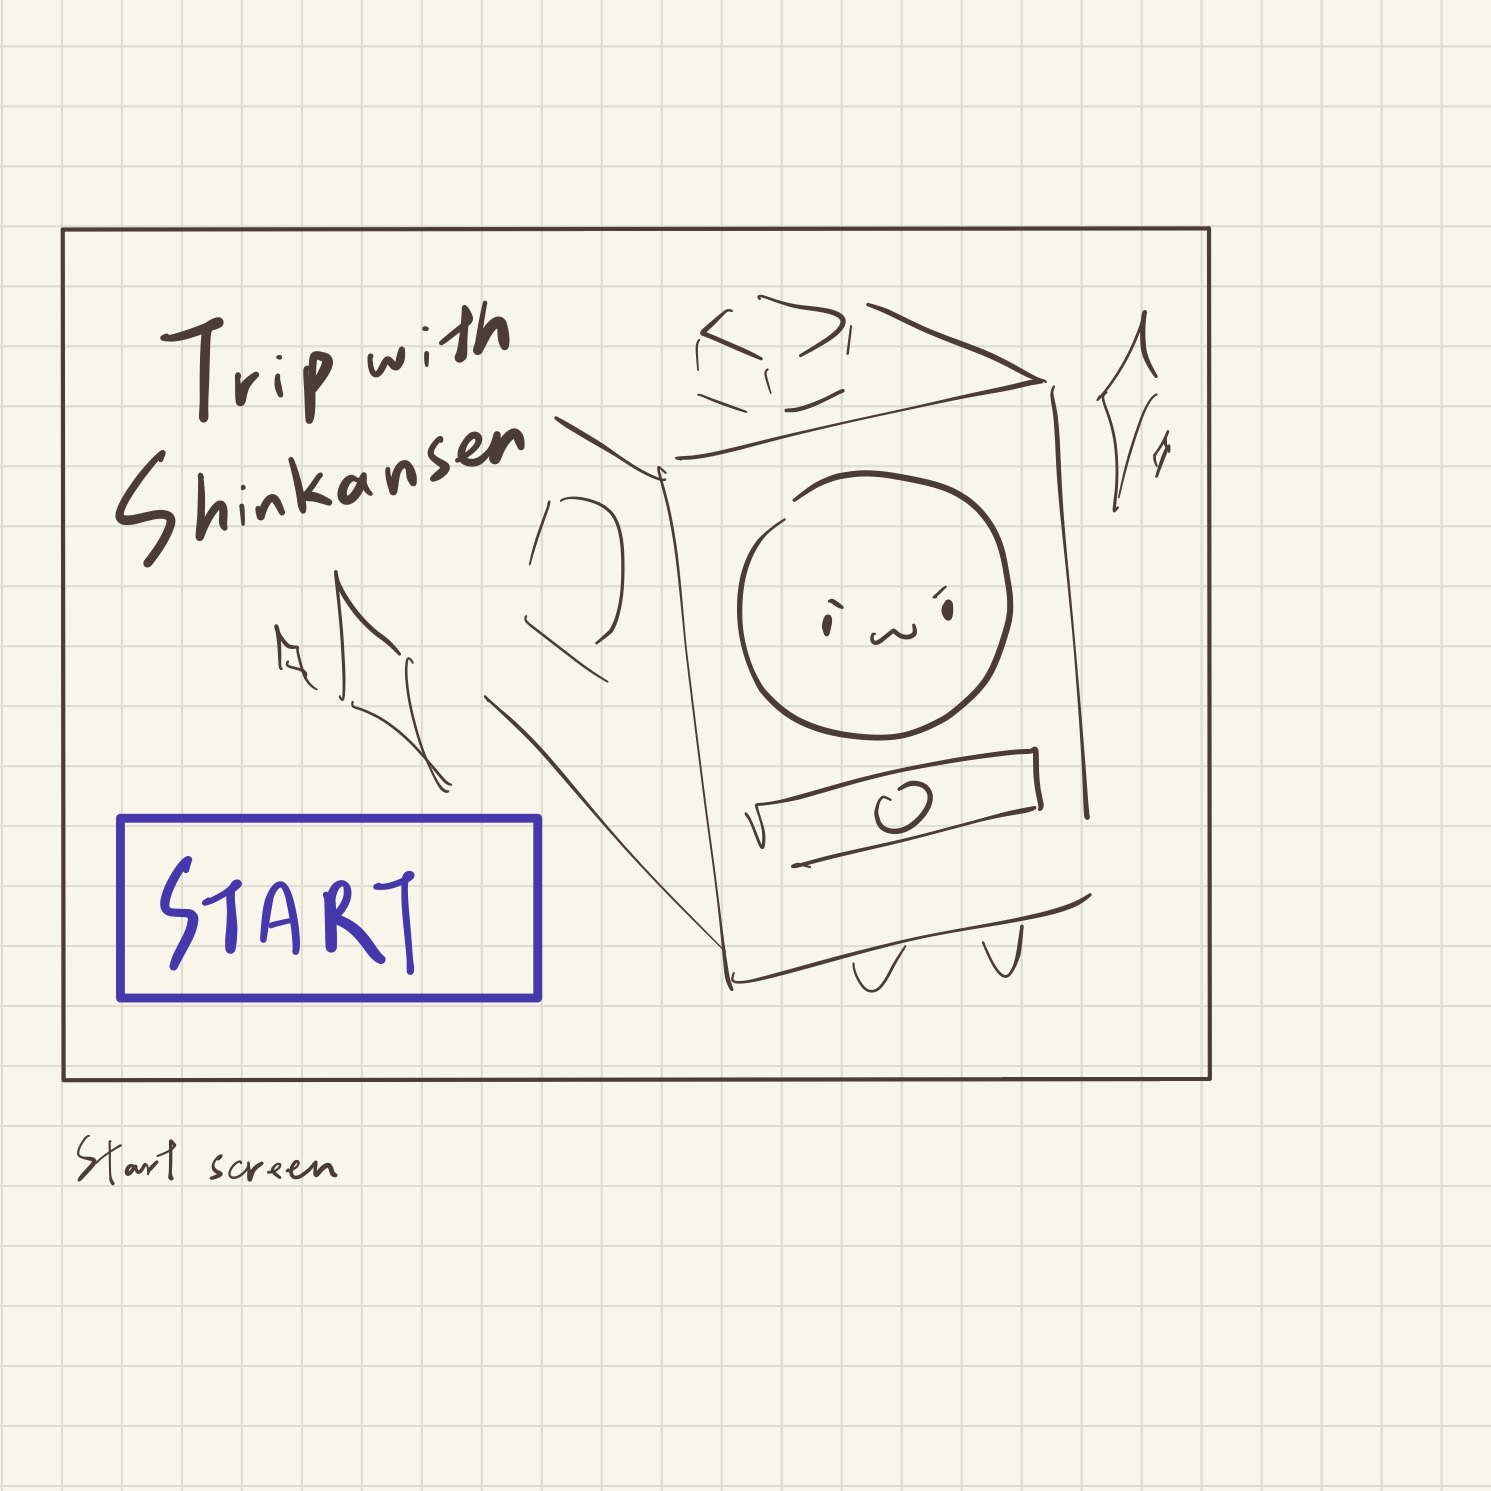 Trip with
Shinkansen
START
Start screen